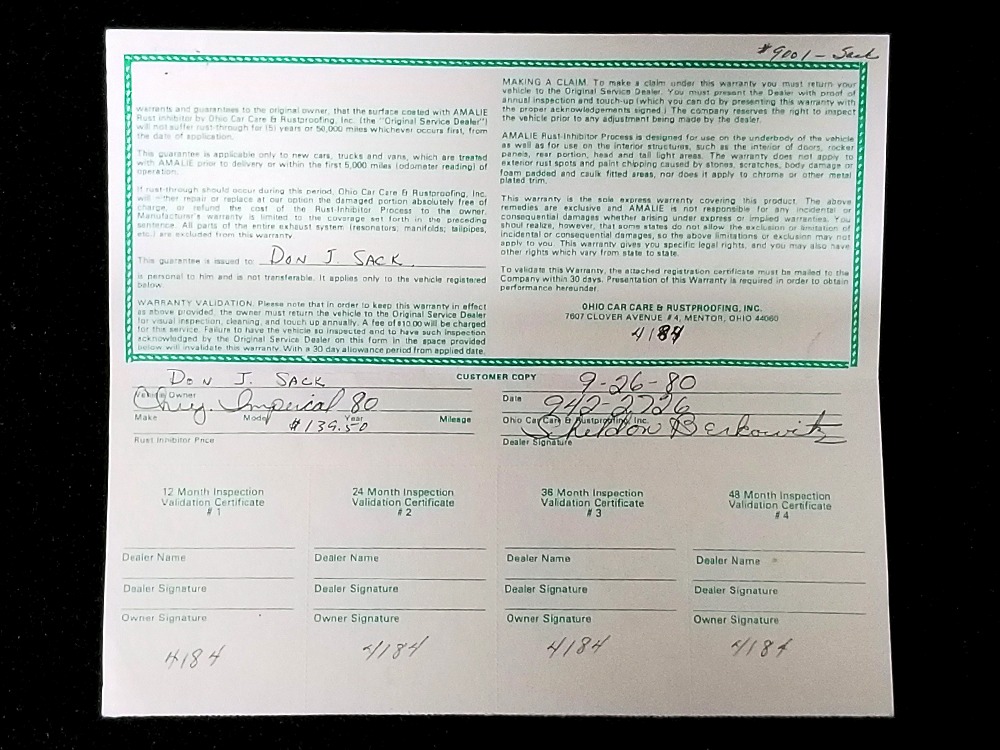 #9001 - Sack
warrants and guarantees to the original owner, that the surface coated with AMALIE
Rust Inhibitor by Ohio Car Care & Rustproofing, Inc. (the "Original Service Dealer")
will not suffer rust-through for (5) years or 50,000 miles whichever occurs first, from
the date of application.
This guarantee is applicable only to new cars, trucks and vans, which are treated
with AMALIE prior to delivery or within the first 5,000 miles (odometer reading) of
operation.
If rust-through should occur during this period, Ohio Car Care & Rustproofing, Inc.
will either repair or replace at our option the damaged portion absolutely free of
charge, or refund the cost of the Rust-Inhibitor Process to the owner.
Manufacturer's warranty is limited to the coverage set forth in the preceding
sentence. All parts of the entire exhaust system (resonators, manifolds, tailpipes,
etc.) are excluded from this warranty.
This guarantee is issued to: DON J. SACK
is personal to him and is not transferable. It applies only to the vehicle registered
below.
WARRANTY VALIDATION. Please note that in order to keep this warranty in effect
as above provided, the owner must return the vehicle to the Original Service Dealer
for visual inspection, cleaning, and touch up annually. A fee of $10.00 will be charged
for this service. Failure to have the vehicle so inspected and to have such inspection
acknowledged by the Original Service Dealer on this form in the space provided
below will invalidate this warranty. With a 30 day allowance period from applied date.
MAKING A CLAIM. To make a claim under this warranty you must return your
vehicle to the Original Service Dealer. You must present the Dealer with proof of
annual inspection and touch-up (which you can do by presenting this warranty with
the proper acknowledgements signed.) The company reserves the right to inspect
the vehicle prior to any adjustment being made by the dealer.
AMALIE Rust-Inhibitor Process is designed for use on the underbody of the vehicle
as well as for use on the interior structures, such as the interior of doors, rocker
panels, rear portion, head and tail light areas. The warranty does not apply to
exterior rust spots and paint chipping caused by stones, scratches, body damage or
foam padded and caulk fitted areas, nor does it apply to chrome or other metal
plated trim.
This warranty is the sole express warranty covering this product. The above
remedies are exclusive and AMALIE is not responsible for any incidental or
consequential damages whether arising under express or implied warranties. You
shoul realize, however, that some states do not allow the exclusion or limitation of
incidental or consequential damages, so the above limitations or exclusion may not
apply to you. This warranty gives you specific legal rights, and you may also have
other rights which vary from state to state.
To validate this Warranty, the attached registration certificate must be mailed to the
Company within 30 days. Presentation of this Warranty is required in order to obtain
performance hereunder.
OHIO CAR CARE & RUSTPROOFING, INC.
7607 CLOVER AVENUE #4, MENTOR, OHIO 44060
4184
CUSTOMER COPY
DON J. SACK
Vehicle Owner
Chry. Imperial 80
Make Model Year Mileage
$139.50
Rust Inhibitor Price
9-26-80
Date
942-2726
Ohio Car Care & Rustproofing, Inc.
Sheldon Berkowitz
Dealer Signature
12 Month Inspection
Validation Certificate
#1
Dealer Name
Dealer Signature
Owner Signature
4184
24 Month Inspection
Validation Certificate
#2
Dealer Name
Dealer Signature
Owner Signature
4184
36 Month Inspection
Validation Certificate
#3
Dealer Name
Dealer Signature
Owner Signature
4184
48 Month Inspection
Validation Certificate
#4
Dealer Name
Dealer Signature
Owner Signature
4184